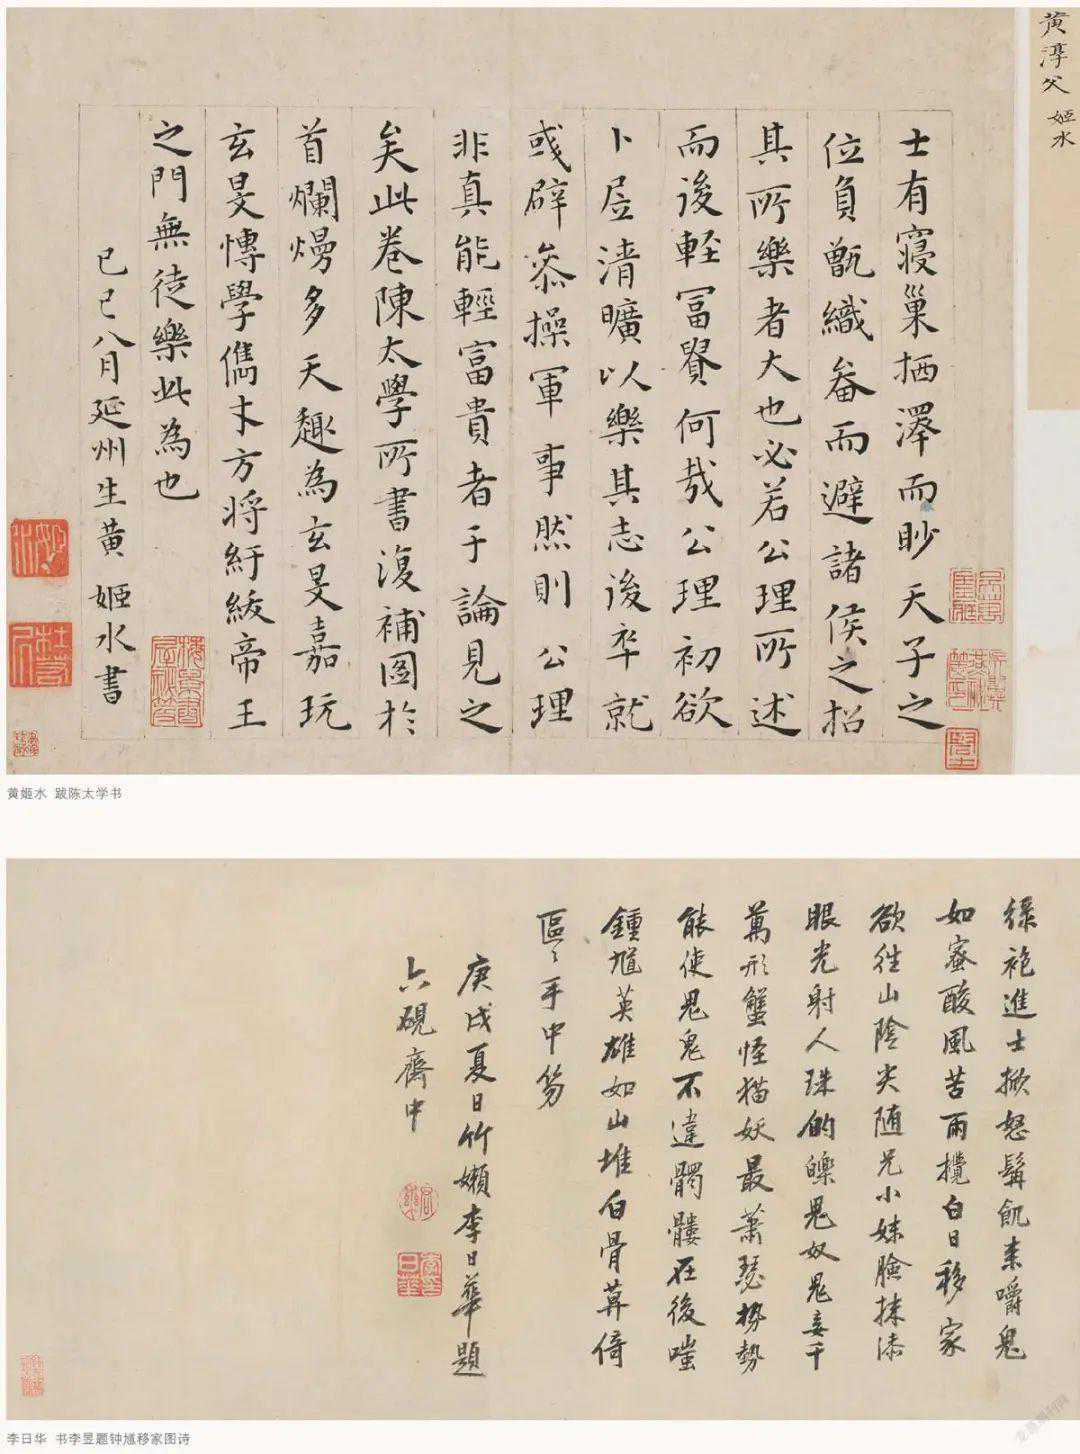 黄淳父 姬水
士有寝巢栖澤而眇天子之
位負甑織畚而避諸侯之招
其所樂者大也必若公理所述
而後輕冨貴何哉公理初欲
卜居清曠以樂其志後卒就
彧辟叅操軍事然則公理
非真能輕富貴者于論見之
矣此卷陳太學所書復補圖於
首爛熳多天趣為玄旻嘉玩
玄旻慱學儁才方將紆紱帝王
之門無徒樂此為也
己巳八月延州生黄姬水書
黄姬水 跋陈太学书
緑袍進士掀怒髯飢来嚼鬼
如蜜酸風苦雨攪白日移家
欲往山陰尖随兄小妹臉抹漆
眼光射人珠的皪鬼奴鬼妾千
萬形蟹怪猫妖最蕭瑟
能使鬼鬼不違髑髏在後嗤
鍾馗英雄如山堆白骨莫倚
區〻手中笏
庚戌夏日竹嬾李日華題
六硯齋中
李日华 书李昱题钟馗移家图诗